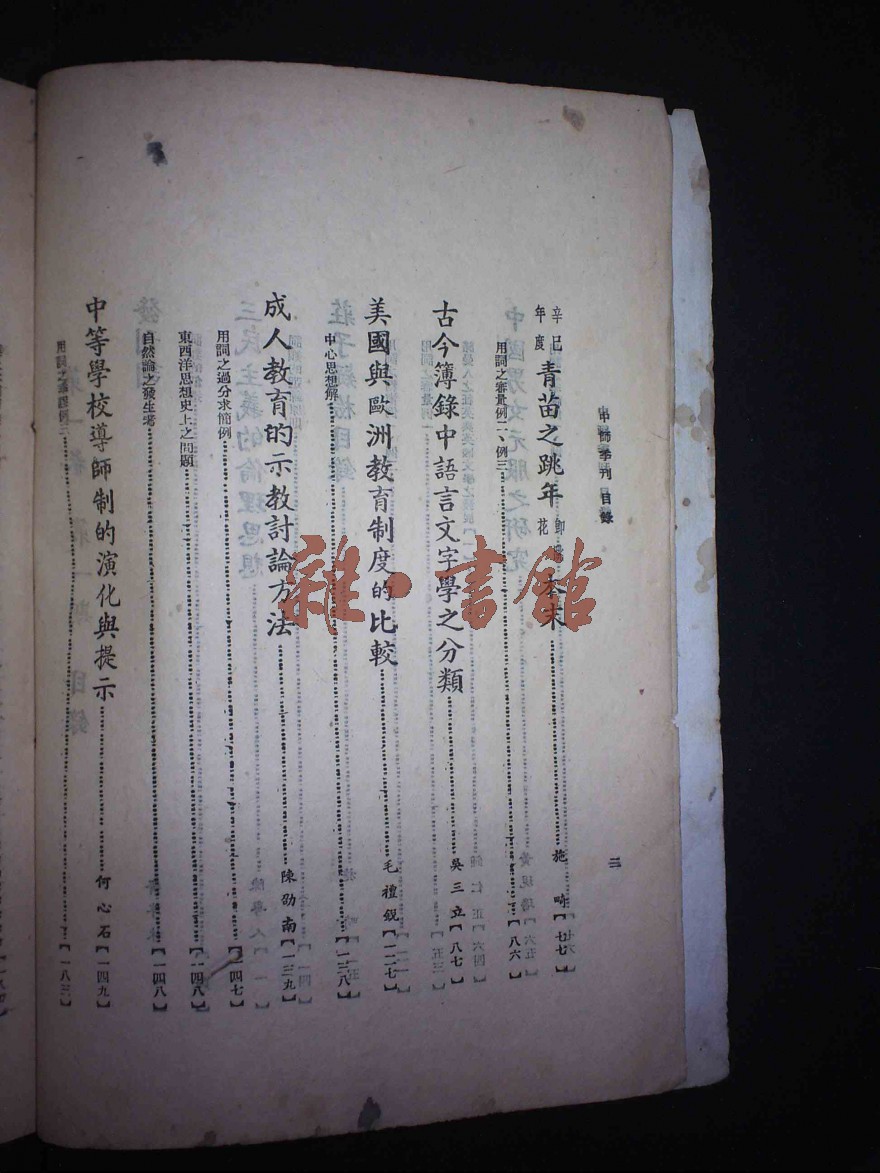 中師季刊 目錄
二
辛巳年度青苗之跳年花本末 施 【七七】
用詞之審量例二、例三 【八六】
古今簿錄中語言文字學之分類 吳三立【八七】
美國與歐洲教育制度的比較 毛禮銳【一二七】
中心思想解 【一三八】
成人教育的示教討論方法 陳劭南【一三九】
用詞之過分求簡例 【一四七】
東西洋思想史上之問題 【一四八】
自然論之發生考 【一四八】
中等學校導師制的演化與提示 何心石【一四九】
用詞之審 例三 【一八三】
雜·書館